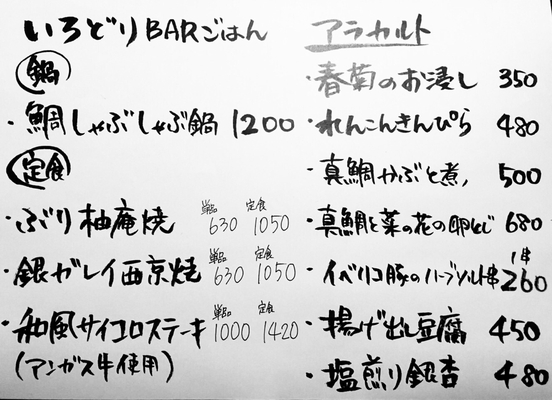 いろどりBARごはん
鍋
・鯛しゃぶしゃぶ鍋 1200
定食
・ぶり柚庵焼 単品 630 定食 1050
・銀ガレイ西京焼 単品 630 定食 1050
・和風サイコロステーキ 単品 1000 定食 1420
(アンガス牛使用)
アラカルト
・春菊のお浸し 350
・れんこんきんぴら 480
・真鯛かぶと煮 500
・真鯛と菜の花の卵とじ 680
・イベリコ豚のハーブソルト串 1本 260
・揚げ出し豆腐 450
・塩煎り銀杏 480